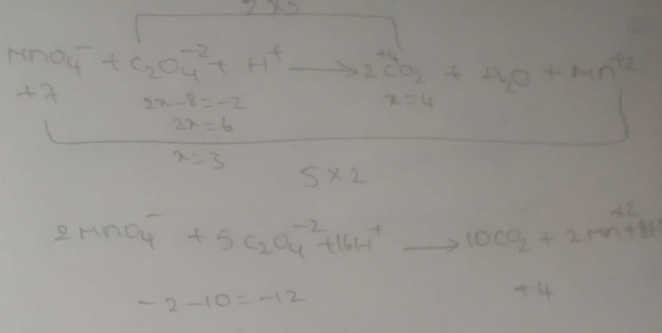 2 × 5
MnO4⁻ + C2O4⁻² + H⁺ ⟶ 2CO2 + H2O + Mn⁺²
+7
+4
2x-8=-2
x=4
2x=6
x=3
5×2
2MnO4⁻ + 5C2O4⁻² + 16H⁺ ⟶ 10CO2 + 2Mn⁺² +8H
-2-10=-12
+4